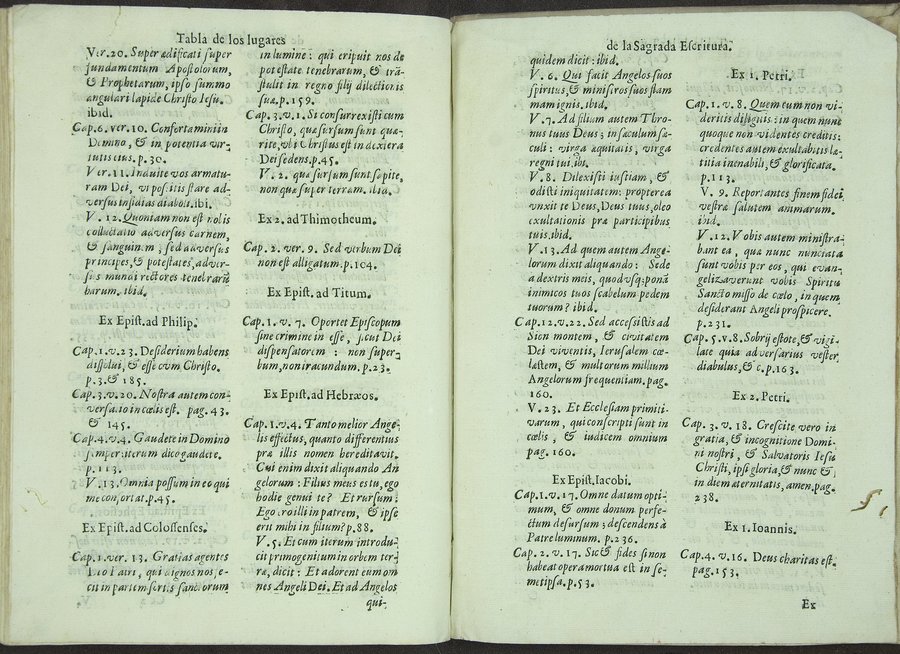 Tabla de los lugares
Ver.20. Superædificati super
fundamentum Apostolorum,
& Prophetarum, ipso summo
angulari lapide Christo Iesu.
ibid.
Cap.6.ver.10. Confortamini in
Domino, & in potentia vir-
tutis eius.p.30.
Ver.11. Induite vos armatu-
ram Dei, vt possitis stare ad-
versus insidias diaboli.ibi.
V. 12. Quoniam non est nobis
colluctatio adversus carnem,
& sanguinem, sed adversus
principes, & potestates, adver-
sus mundi rectores tenebrarũ
harum. ibid.
Ex Epist. ad Philip.
Cap.1.v.23. Desiderium habens
dissolui, & esse cum Christo.
p.3.& 185.
Cap.3.v.20. Nostra autem con-
versatio in cœlis est. pag. 43.
& 145.
Cap.4.v.4. Gaudete in Domino
semper iterum dico gaudete.
p.113.
V. 13. Omnia possum in eo qui
me confortat.p.45.
Ex Epist. ad Colossenses.
Cap.1.ver. 13. Gratias agentes
Deo Patri, qui dignos nos fe-
cit in partem sortis sanctorum
in lumine: qui eripuit nos de
potestate tenebrarum, & trã-
stulit in regno filij dilectionis
suæ.p.159.
Cap.3.v.1. Si consurrexisti cum
Christo, quæ sursum sunt quæ-
rite, vbi Christus est in dextera
Dei sedens.p.45.
V. 2. quæ sursum sunt sapite,
non quæ super terram. ibid.
Ex 2. ad Thimotheum.
Cap. 2. ver. 9. Sed verbum Dei
non est alligatum.p.104.
Ex Epist. ad Titum.
Cap.1.v. 7. Oportet Episcopum
sine crimine in esse, sicut Dei
dispensatorem: non super-
bum, non iracundum.p.23.
Ex Epist. ad Hebræos.
Cap.1.v.4. Tanto melior Ange-
lis effectus, quanto differentius
præ illis nomen hereditavit.
Cui enim dixit aliquando An
gelorum: Filius meus es tu, ego
hodie genui te? Et rursum:
Ego ero illi in patrem, & ipse
erit mihi in filium? p.88.
V. 5. Et cum iterum introdu-
cit primogenitum in orbem ter-
ræ, dicit: Et adorent eum om
nes Angeli Dei. Et ad Angelos
qui-
de la Sagrada Escritura.
quidem dicit: ibid.
V. 6. Qui facit Angelos suos
spiritus, & ministros suos flam
mam ignis. ibid.
V. 7. Ad filium autem Thro-
nus tuus Deus; in sæculum sæ-
culi: virga æquitatis, virga
regni tui.ibi.
V.8. Dilexisti iustiam, &
odisti iniquitatem: propterea
vnxit te Deus, Deus tuus, oleo
exultationis præ participibus
tuis.ibid.
V. 13. Ad quem autem Ange-
lorum dixit aliquando: Sede
a dextris meis, quodvsq; ponã
inimicos tuos scabelum pedem
tuorum? ibid.
Cap.12.v.22. Sed accessistis ad
Sion montem, & civitatem
Dei viventis, Ierusalem cœ-
læstem, & multorum millium
Angelorum frequentiam. pag.
160.
V. 23. Et Ecclesiam primiti-
varum, qui conscripti sunt in
cœlis, & iudicem omnium
pag. 160.
Ex Epist. Iacobi.
Cap.1.v. 17. Omne datum opti-
mum, & omne donum perfe-
ctum desursum; descendens à
Patre luminum. p. 236.
Cap. 2. v. 17. Sic & fides si non
habeat opera mortua est in se-
metipsa.p.53.
Ex 1. Petri.
Cap.1. v. 8. Quem cum non vi-
deritis diligitis: in quem nunc
quoque non videntes creditis:
credentes autem exultabitis læ-
titia inenabili, & glorificata.
p.113.
V. 9. Reportantes finem fidei
vestræ salutem animarum.
ibid.
V. 12. Vobis autem ministra-
bant ea, quæ nunc nunciata
sunt vobis per eos, qui evan-
gelizaverunt vobis Spiritu
Sancto misso de cœlo, in quem
desiderant Angeli prospicere.
p.231.
Cap.5.v.8. Sobrij estote, & vigi-
late quia adversarius vester
diabulus, & c.p.163.
Ex 2. Petri.
Cap. 3. v. 18. Crescite vero in
gratia, & in cognitione Domi-
ni nostri, & Salvatoris Iesu
Christi, ipsi gloria, & nunc &
in diem æternitatis, amen.pag.
238.
Ex 1. Ioannis.
Cap.4. v. 16. Deus charitas est.
pag.153.
Ex